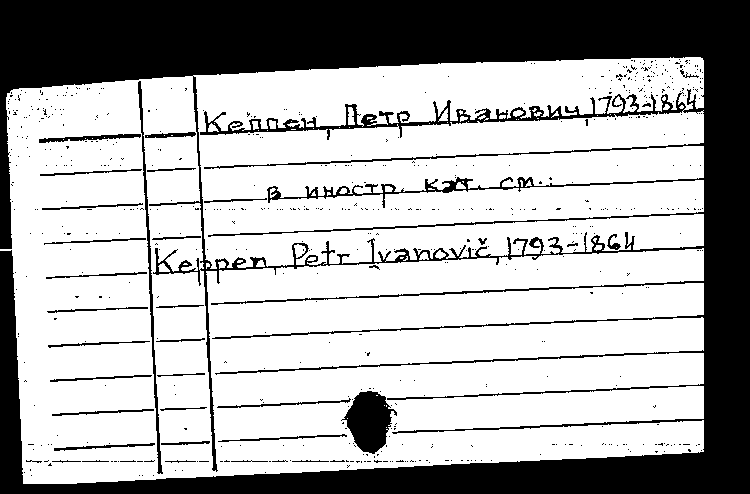 Кеппен, Петр Иванович, 1793-1864
в иностр. кат. см.:
Keppen, Petr Ivanovič, 1793-1864